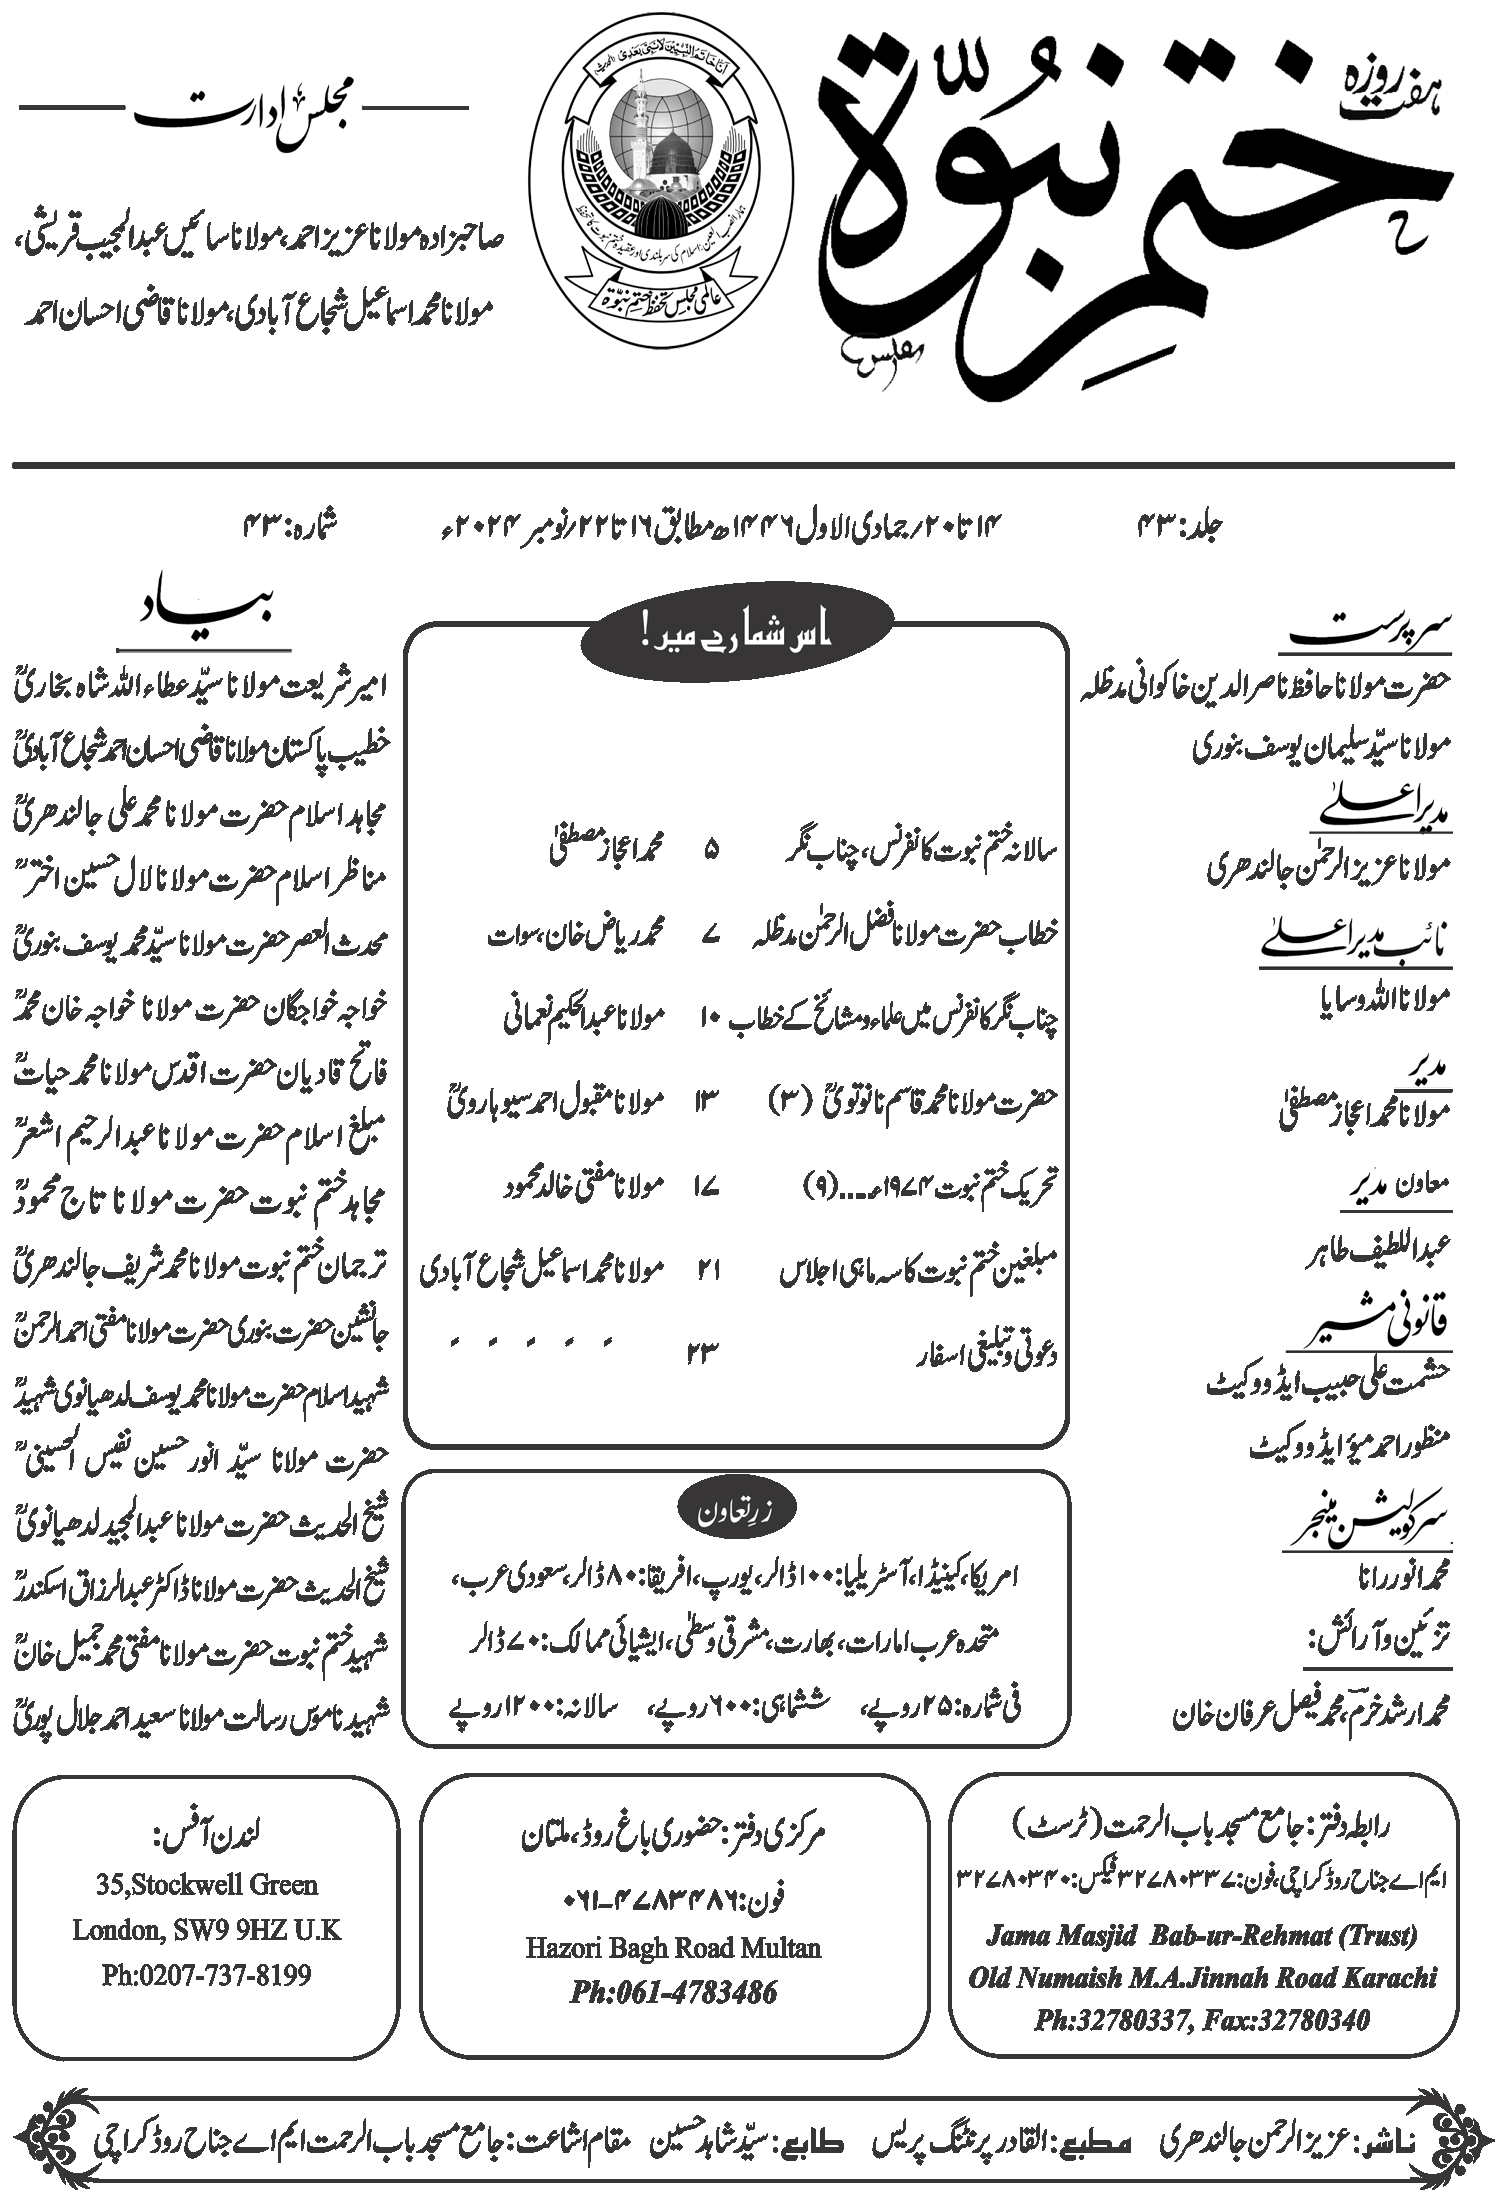 ہفت روزہ
ختم نبوّة
انا خاتم النبیین لا نبی بعدی
عالمی مجلس تحفظ ختم نبوّة
مجلس ادارت
صاحبزادہ مولانا عزیز احمد، مولانا سائیں عبدالمجیب قریشی،
مولانا محمد اسماعیل شجاع آبادی، مولانا قاضی احسان احمد
جلد: ۴۳
۱۴ تا ۲۰/ جمادی الاول ۱۴۴۶ھ مطابق ۱۶ تا ۲۲/ نومبر ۲۰۲۴ء
شمارہ: ۴۳
سرپرست
حضرت مولانا حافظ ناصر الدین خاکوانی مدظلہ
مولانا سیّد سلیمان یوسف بنوری
مدیر اعلیٰ
مولانا عزیز الرحمٰن جالندھری
نائب مدیر اعلیٰ
مولانا اللہ وسایا
مدیر
مولانا محمد اعجاز مصطفیٰ
معاون مدیر
عبداللطیف طاہر
قانونی مشیر
حشمت علی حبیب ایڈووکیٹ
منظور احمد میؤ ایڈووکیٹ
سرکولیشن منیجر
محمد انور رانا
تزئین و آرائش:
محمد ارشد خرم، محمد فیصل عرفان خان
اس شمارے میں!
سالانہ ختم نبوت کانفرنس، چناب نگر ۵ محمد اعجاز مصطفیٰ
خطاب حضرت مولانا فضل الرحمٰن مدظلہ ۷ محمد ریاض خان، سوات
چناب نگر کانفرنس میں علماء و مشائخ کے خطاب ۱۰ مولانا عبدالحکیم نعمانی
حضرت مولانا محمد قاسم نانوتویؒ (۳) ۱۳ مولانا مقبول احمد سیوہارویؒ
تحریک ختم نبوت ۱۹۷۴ء....(۹) ۱۷ مولانا مفتی خالد محمود
مبلغین ختم نبوت کا سہ ماہی اجلاس ۲۱ مولانا محمد اسماعیل شجاع آبادی
دعوتی و تبلیغی اسفار ۲۳ ״ ״ ״ ״ ״
زرِتعاون
امریکا، کینیڈا، آسٹریلیا: ۱۰۰ ڈالر، یورپ، افریقا: ۸۰ ڈالر، سعودی عرب،
متحدہ عرب امارات، بھارت، مشرقی وسطیٰ، ایشیائی ممالک: ۷۰ ڈالر
فی شمارہ: ۲۵ روپے، ششماہی: ۶۰۰ روپے، سالانہ: ۱۲۰۰ روپے
بیاد
امیر شریعت مولانا سیّد عطاء اللہ شاہ بخاریؒ
خطیب پاکستان مولانا قاضی احسان احمد شجاع آبادیؒ
مجاہد اسلام حضرت مولانا محمد علی جالندھریؒ
مناظر اسلام حضرت مولانا لال حسین اخترؒ
محدث العصر حضرت مولانا سیّد محمد یوسف بنوریؒ
خواجہ خواجگان حضرت مولانا خواجہ خان محمدؒ
فاتح قادیان حضرت اقدس مولانا محمد حیاتؒ
مبلغ اسلام حضرت مولانا عبدالرحیم اشعرؒ
مجاہد ختم نبوت حضرت مولانا تاج محمودؒ
ترجمان ختم نبوت مولانا محمد شریف جالندھریؒ
جانشین حضرت بنوری حضرت مولانا مفتی احمد الرحمنؒ
شہید اسلام حضرت مولانا محمد یوسف لدھیانوی شہیدؒ
حضرت مولانا سیّد انور حسین نفیس الحسینیؒ
شیخ الحدیث حضرت مولانا عبدالمجید لدھیانویؒ
شیخ الحدیث حضرت مولانا ڈاکٹر عبدالرزاق اسکندرؒ
شہید ختم نبوت حضرت مولانا مفتی محمد جمیل خانؒ
شہید ناموس رسالت مولانا سعید احمد جلال پوریؒ
رابطہ دفتر: جامع مسجد باب الرحمت (ٹرسٹ)
ایم اے جناح روڈ کراچی، فون: ۳۲۷۸۰۳۳۷ فیکس: ۳۲۷۸۰۳۴۰
Jama Masjid Bab-ur-Rehmat (Trust)
Old Numaish M.A.Jinnah Road Karachi
Ph:32780337, Fax:32780340
مرکزی دفتر: حضوری باغ روڈ، ملتان
فون: ۴۷۸۳۴۸۶-۰۶۱
Hazori Bagh Road Multan
Ph:061-4783486
لندن آفس:
35,Stockwell Green
London, SW9 9HZ U.K
Ph:0207-737-8199
ناشر: عزیز الرحمن جالندھری مطبع: القادر پرنٹنگ پریس طابع: سیّد شاہد حسین مقام اشاعت: جامع مسجد باب الرحمت ایم اے جناح روڈ کراچی